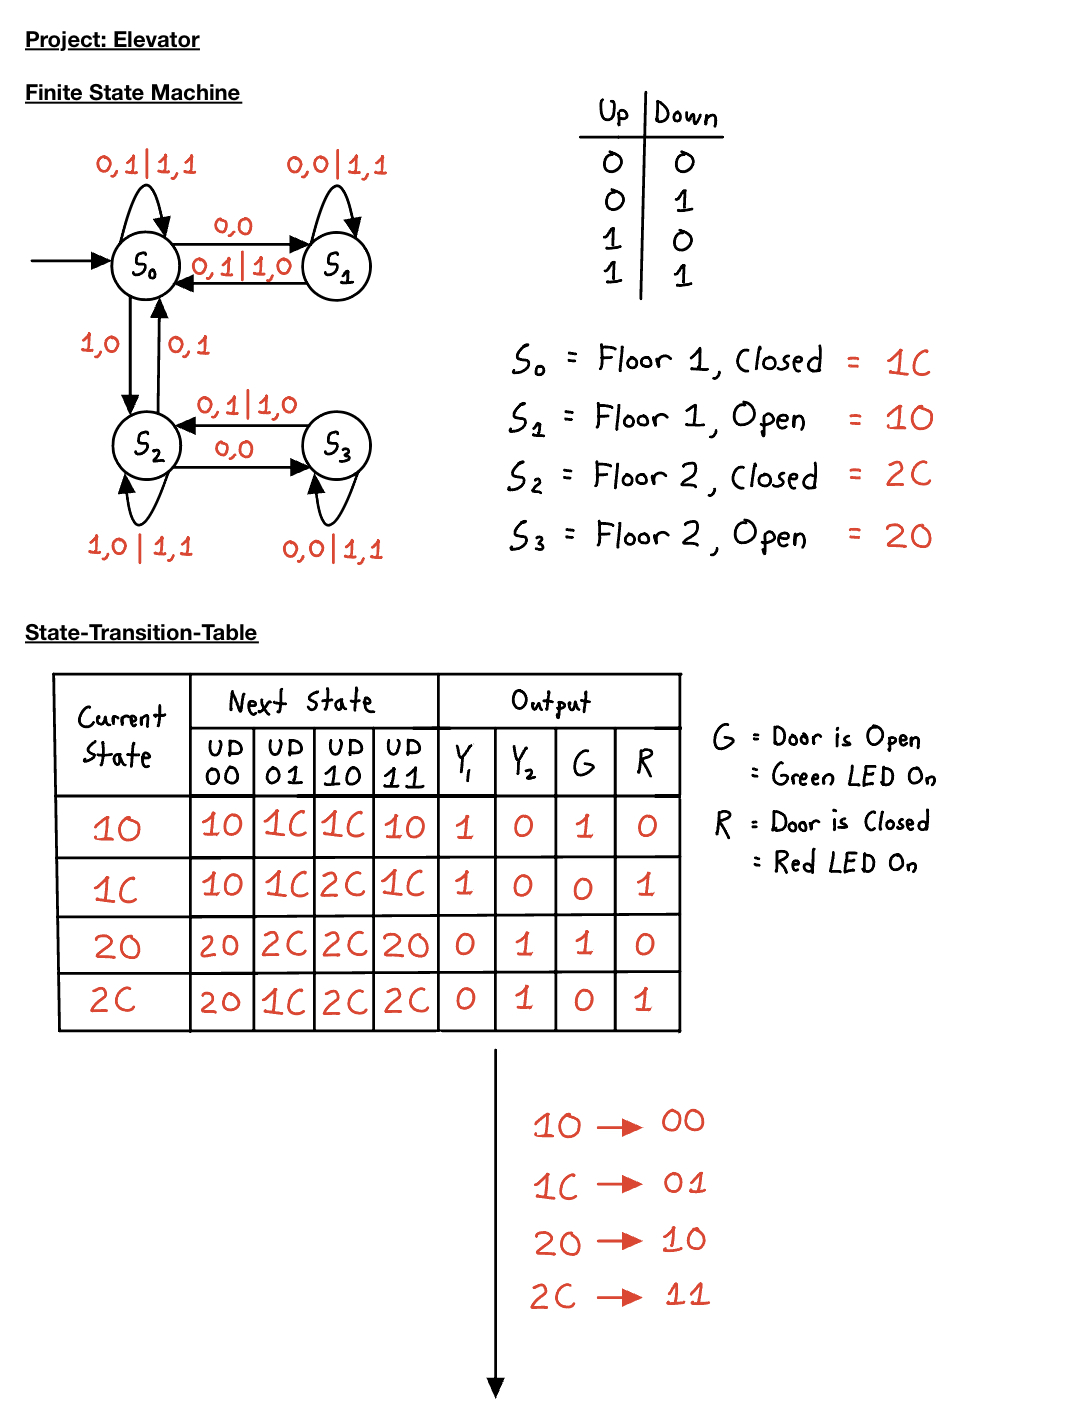 Project: Elevator
Finite State Machine
Up Down
0 0
0 1
1 0
1 1
0,1|1,1 0,0|1,1
0,0
S0 0,1|1,0 S1
1,0 0,1
0,1|1,0
S2 0,0 S3
1,0|1,1 0,0|1,1
S0 = Floor 1, Closed = 1C
S1 = Floor 1, Open = 1O
S2 = Floor 2, Closed = 2C
S3 = Floor 2, Open = 2O
State-Transition-Table
Current State Next State Output
UD 00 UD 01 UD 10 UD 11 Y1 Y2 G R
1O 1O 1C 1C 1O 1 0 1 0
1C 1O 1C 2C 1C 1 0 0 1
2O 2O 2C 2C 2O 0 1 1 0
2C 2O 1C 2C 2C 0 1 0 1
G = Door is Open
= Green LED On
R = Door is Closed
= Red LED On
1O → 00
1C → 01
2O → 10
2C → 11